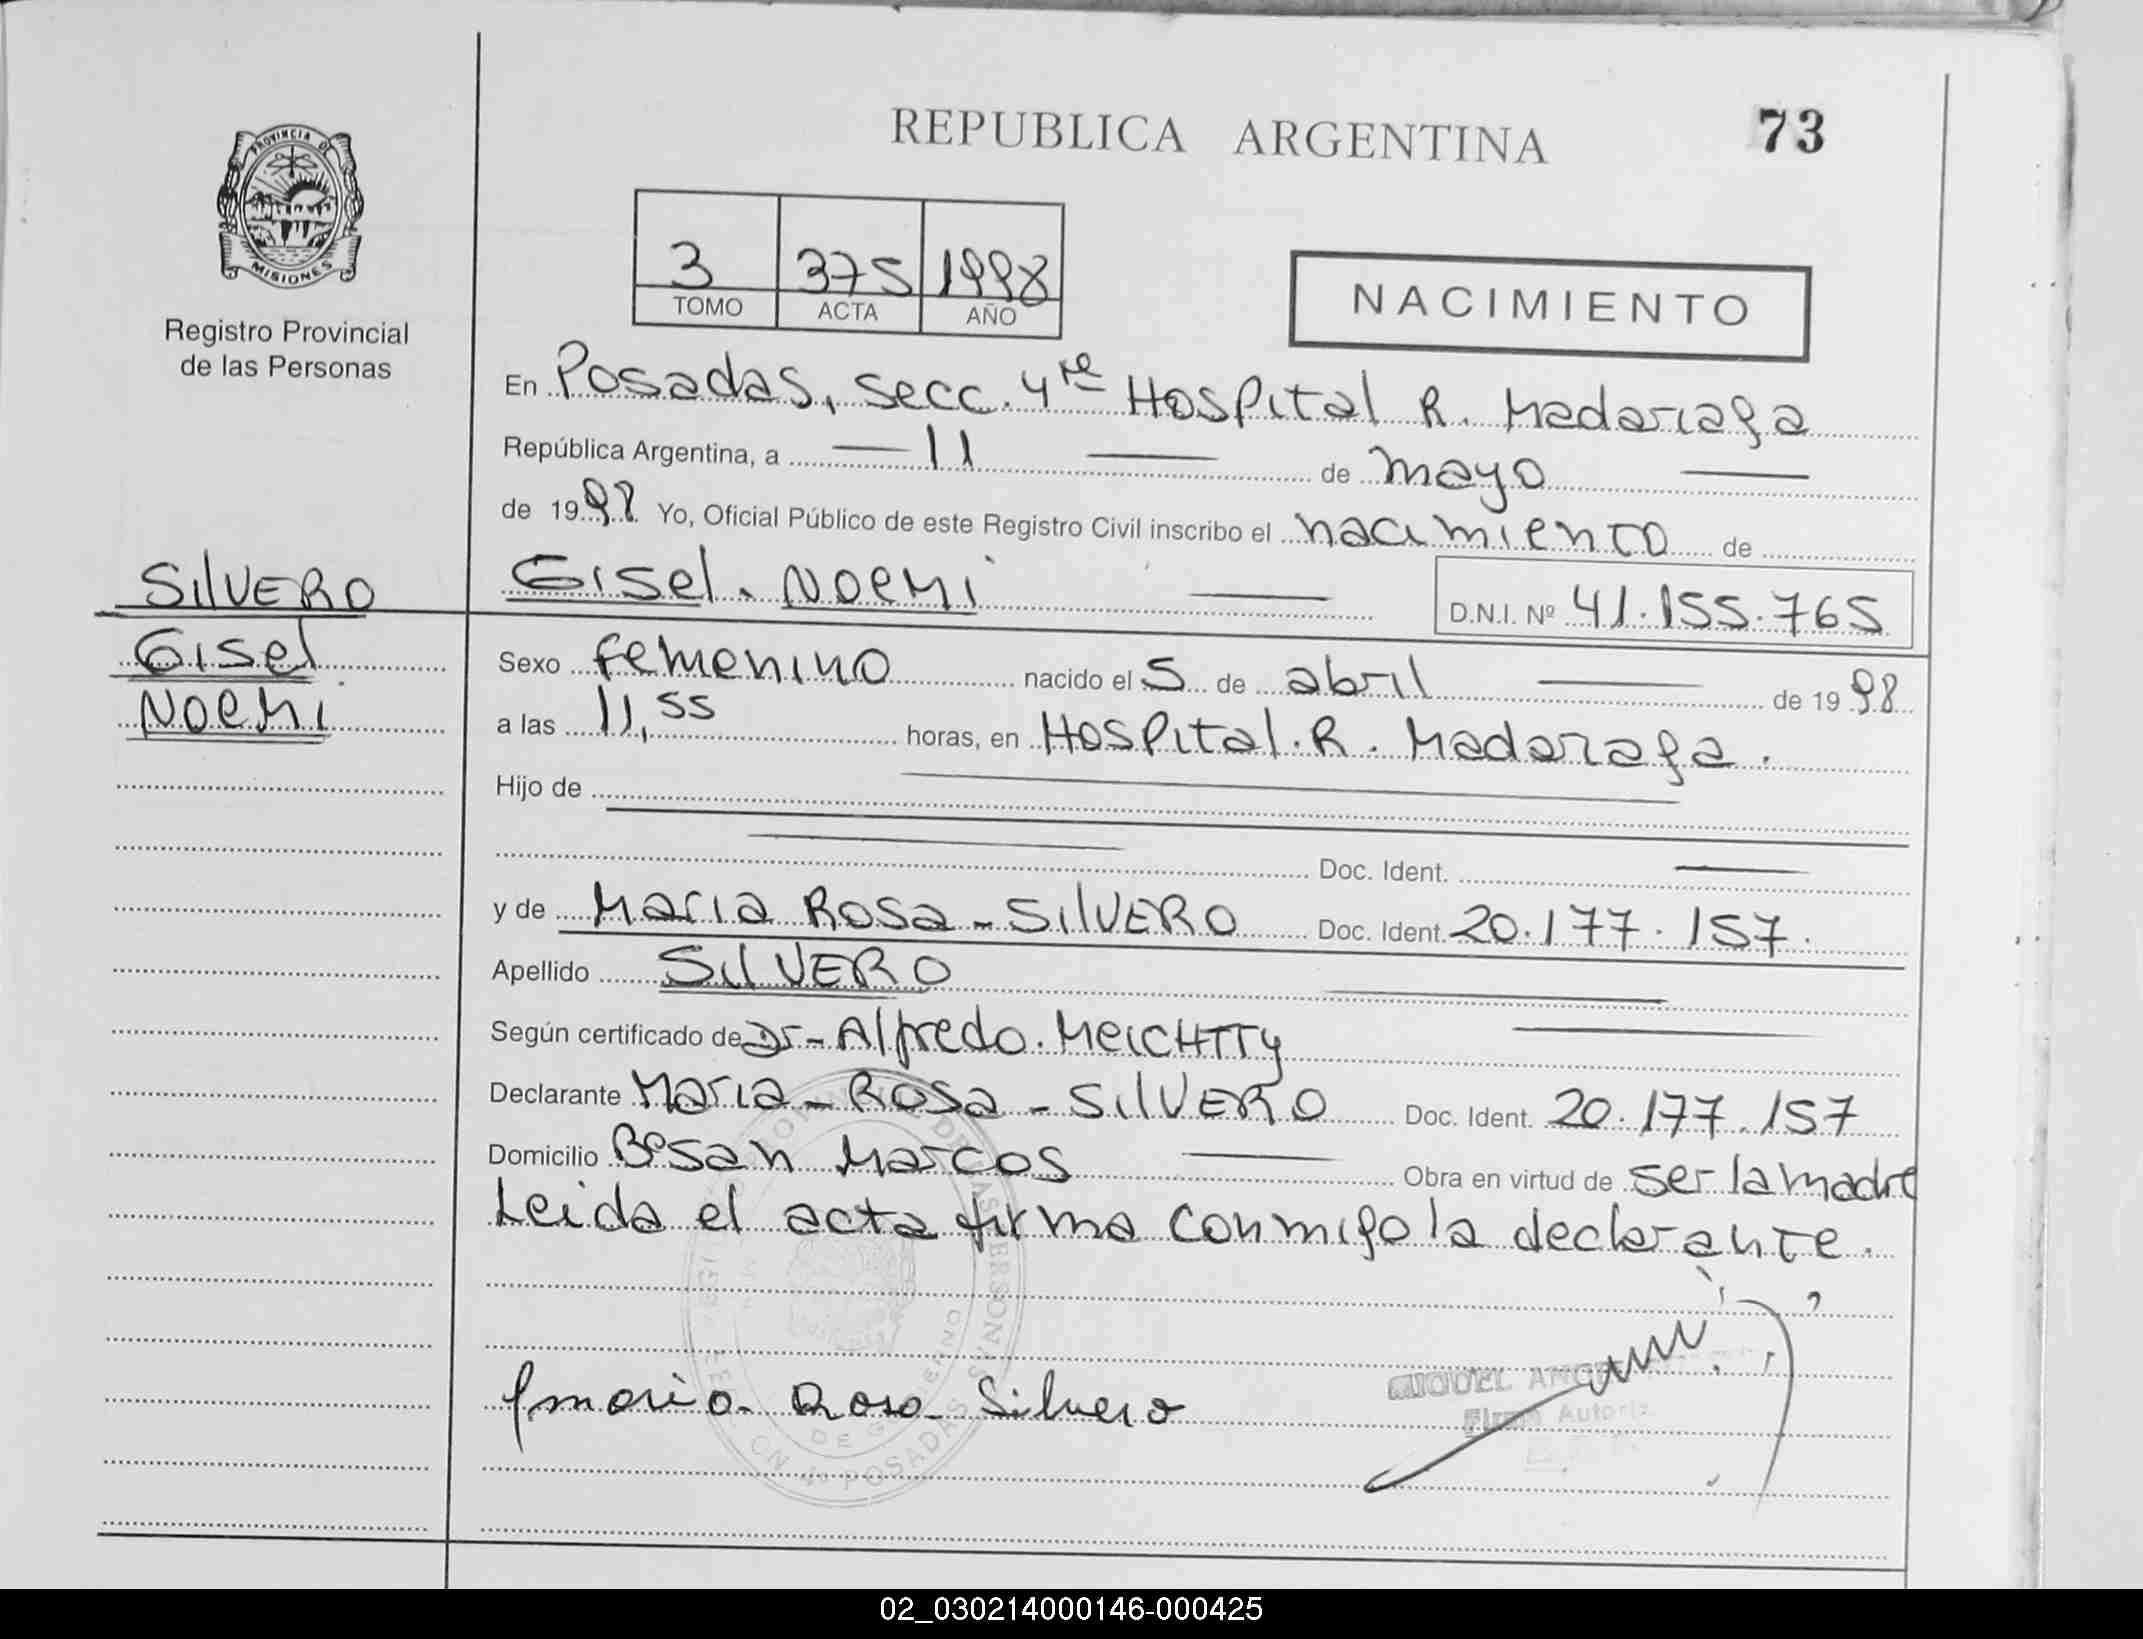 REPUBLICA ARGENTINA
73
PROVINCIA DE
MISIONES
Registro Provincial
de las Personas
3 375 1998
TOMO ACTA AÑO
NACIMIENTO
En Posadas, secc. 4ta Hospital R. Madariaga
República Argentina, a — 11 — de mayo —
de 1998 Yo, Oficial Público de este Registro Civil inscribo el nacimiento de
SilVERO
Gisel
Noemi
Gisel. Noemi — D.N.I. Nº 41.155.765
Sexo femenino nacido el 5 de abril — de 1998
a las 11,55 horas, en Hospital. R. Madariaga.
Hijo de
Doc. Ident. —
y de Maria Rosa - SilVERO Doc. Ident. 20.177.157.
Apellido SilVERO
Según certificado de Dr - Alfredo. MeiCHTTy
Declarante Maria - Rosa - SilVERO Doc. Ident. 20.177.157
Domicilio Bº San Marcos — Obra en virtud de ser la madre
Leida el acta firma conmigo la declarante.
Maria Rosa Silvero
MIGUEL ANGE
Firma Autoriz
DE GOBIERNO
POSADAS
02_030214000146-000425